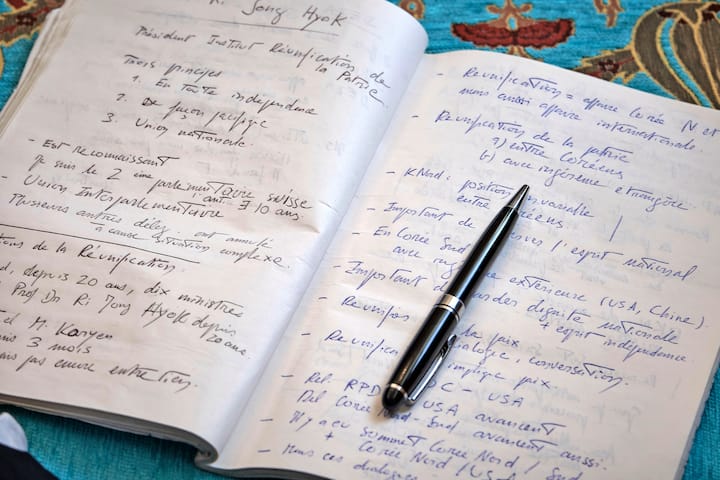 Ri Jong Hyok
Président Institut Réunification de
la Patrie.
Trois principes
1. En toute indépendance
2. De façon pacifique
3. Union nationale.
- Est reconnaissant
Je suis le 2 ème parlementaire suisse
- Union Interparlementaire ant. 10 ans.
Plusieurs autres délég. ont annulé
à cause situation complexe.
de la Réunification.
depuis 20 ans, dix ministres
Prof Dr Ri Jong Hyok depuis
20 ans.
et M.
3 mois
pas encore entretien.
- Réunification = affaire Corée N et
mais aussi affaire internationale.
- Réunification de la patrie
a) entre Coréens
b) avec ingérence étrangère
- KNord : position invariable
entre Coréens
- Important de l'esprit national
- En Corée Sud extérieure (USA, Chine).
avec
- Important dignité nationale
+ esprit indépendance.
- Réunific paix
dialogue, conversation.
- Réunifica implique paix.
- Rel. RPD C - USA
USA avancent
Del Corée Nord - Sud avancent aussi.
- Il y a eu sommet Corée Nord / Sud
+ Corée Nord / USA
dialogue